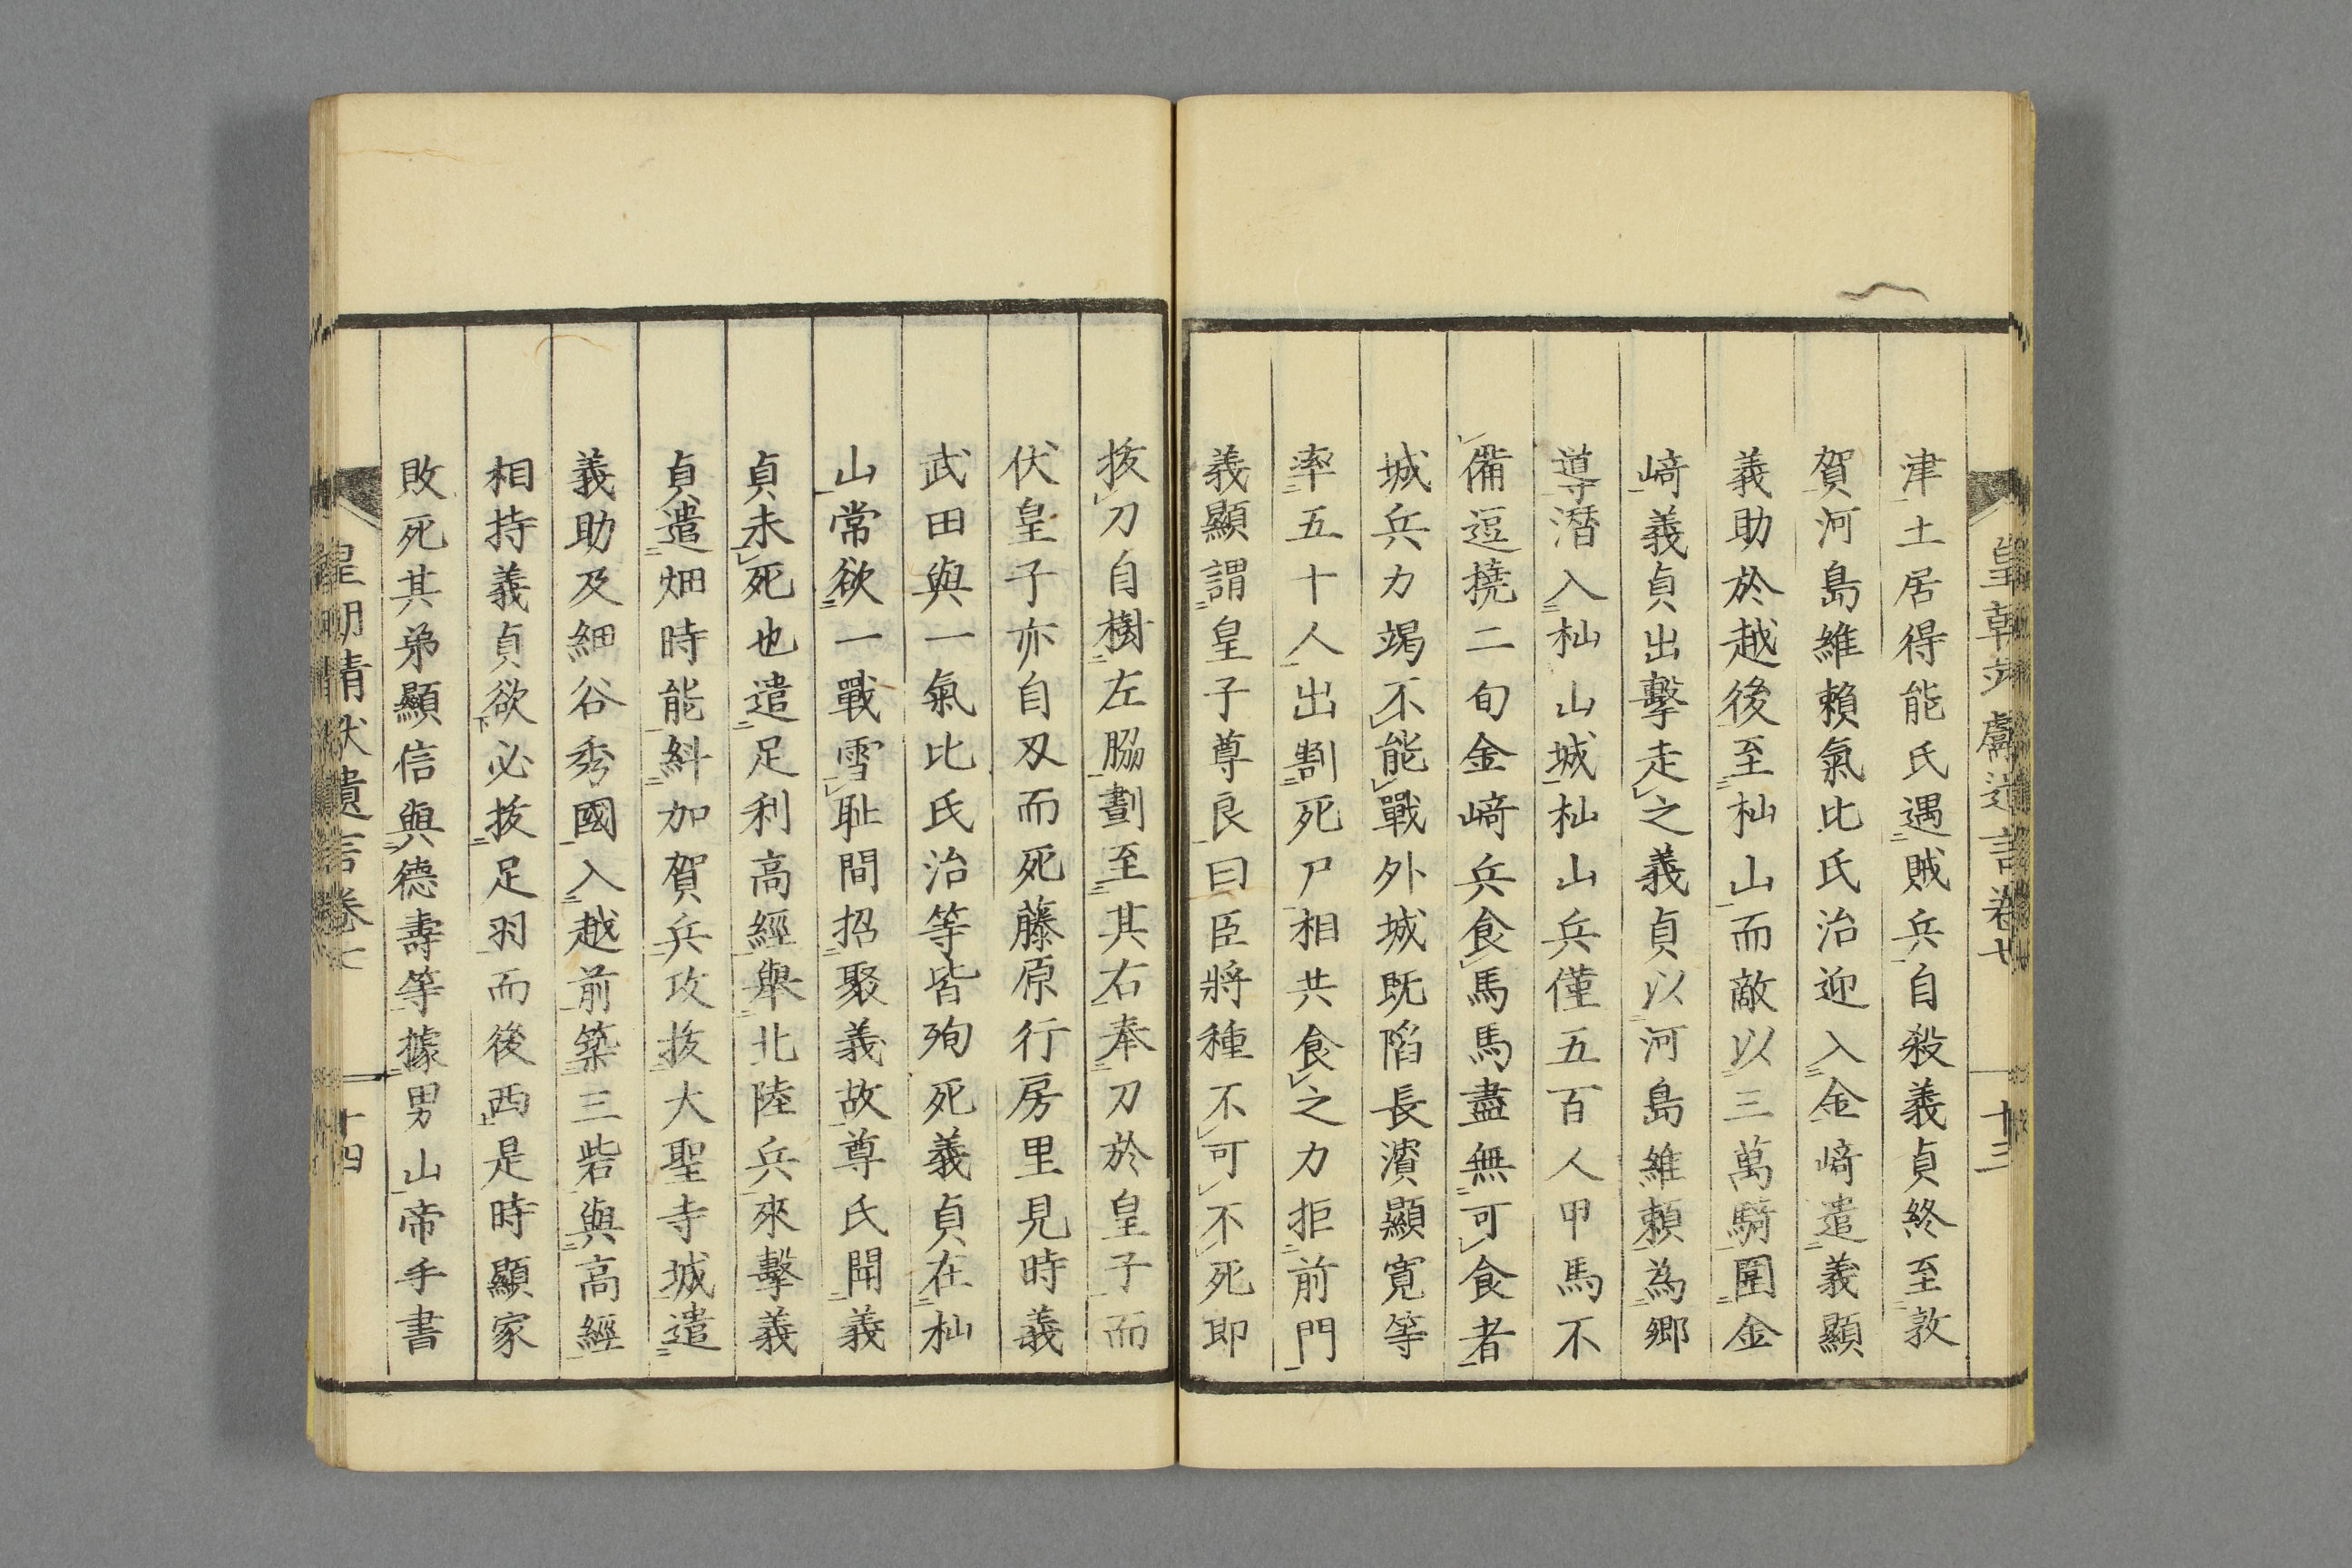 津土居得能氏遇賊兵自殺義貞終至敦
賀河島維賴氣比氏治迎入金﨑遣義顯
義助於越後至杣山而敵以三萬騎圍金
﨑義貞出擊走之義貞以河島維賴為鄉
導潛入杣山城杣山兵僅五百人甲馬不
備逗撓二旬金﨑兵食馬馬盡無可食者
城兵力竭不能戰外城既陷長濵顯寬等
率五十人出割死尸相共食之力拒前門
義顯謂皇子尊良曰臣將種不可不死即
拔刀自樹左脇劃至其右奉刀於皇子而
伏皇子亦自刄而死藤原行房里見時義
武田與一氣比氏治等皆殉死義貞在杣
山常欲一戰雪耻間招聚義故尊氏聞義
貞未死也遣足利高經舉北陸兵來擊義
貞遣畑時能糾加賀兵攻拔大聖寺城遣
義助及細谷秀國入越前築三砦與高經
相持義貞欲必拔足羽而後西是時顯家
敗死其弟顯信與德壽等據男山帝手書
十四